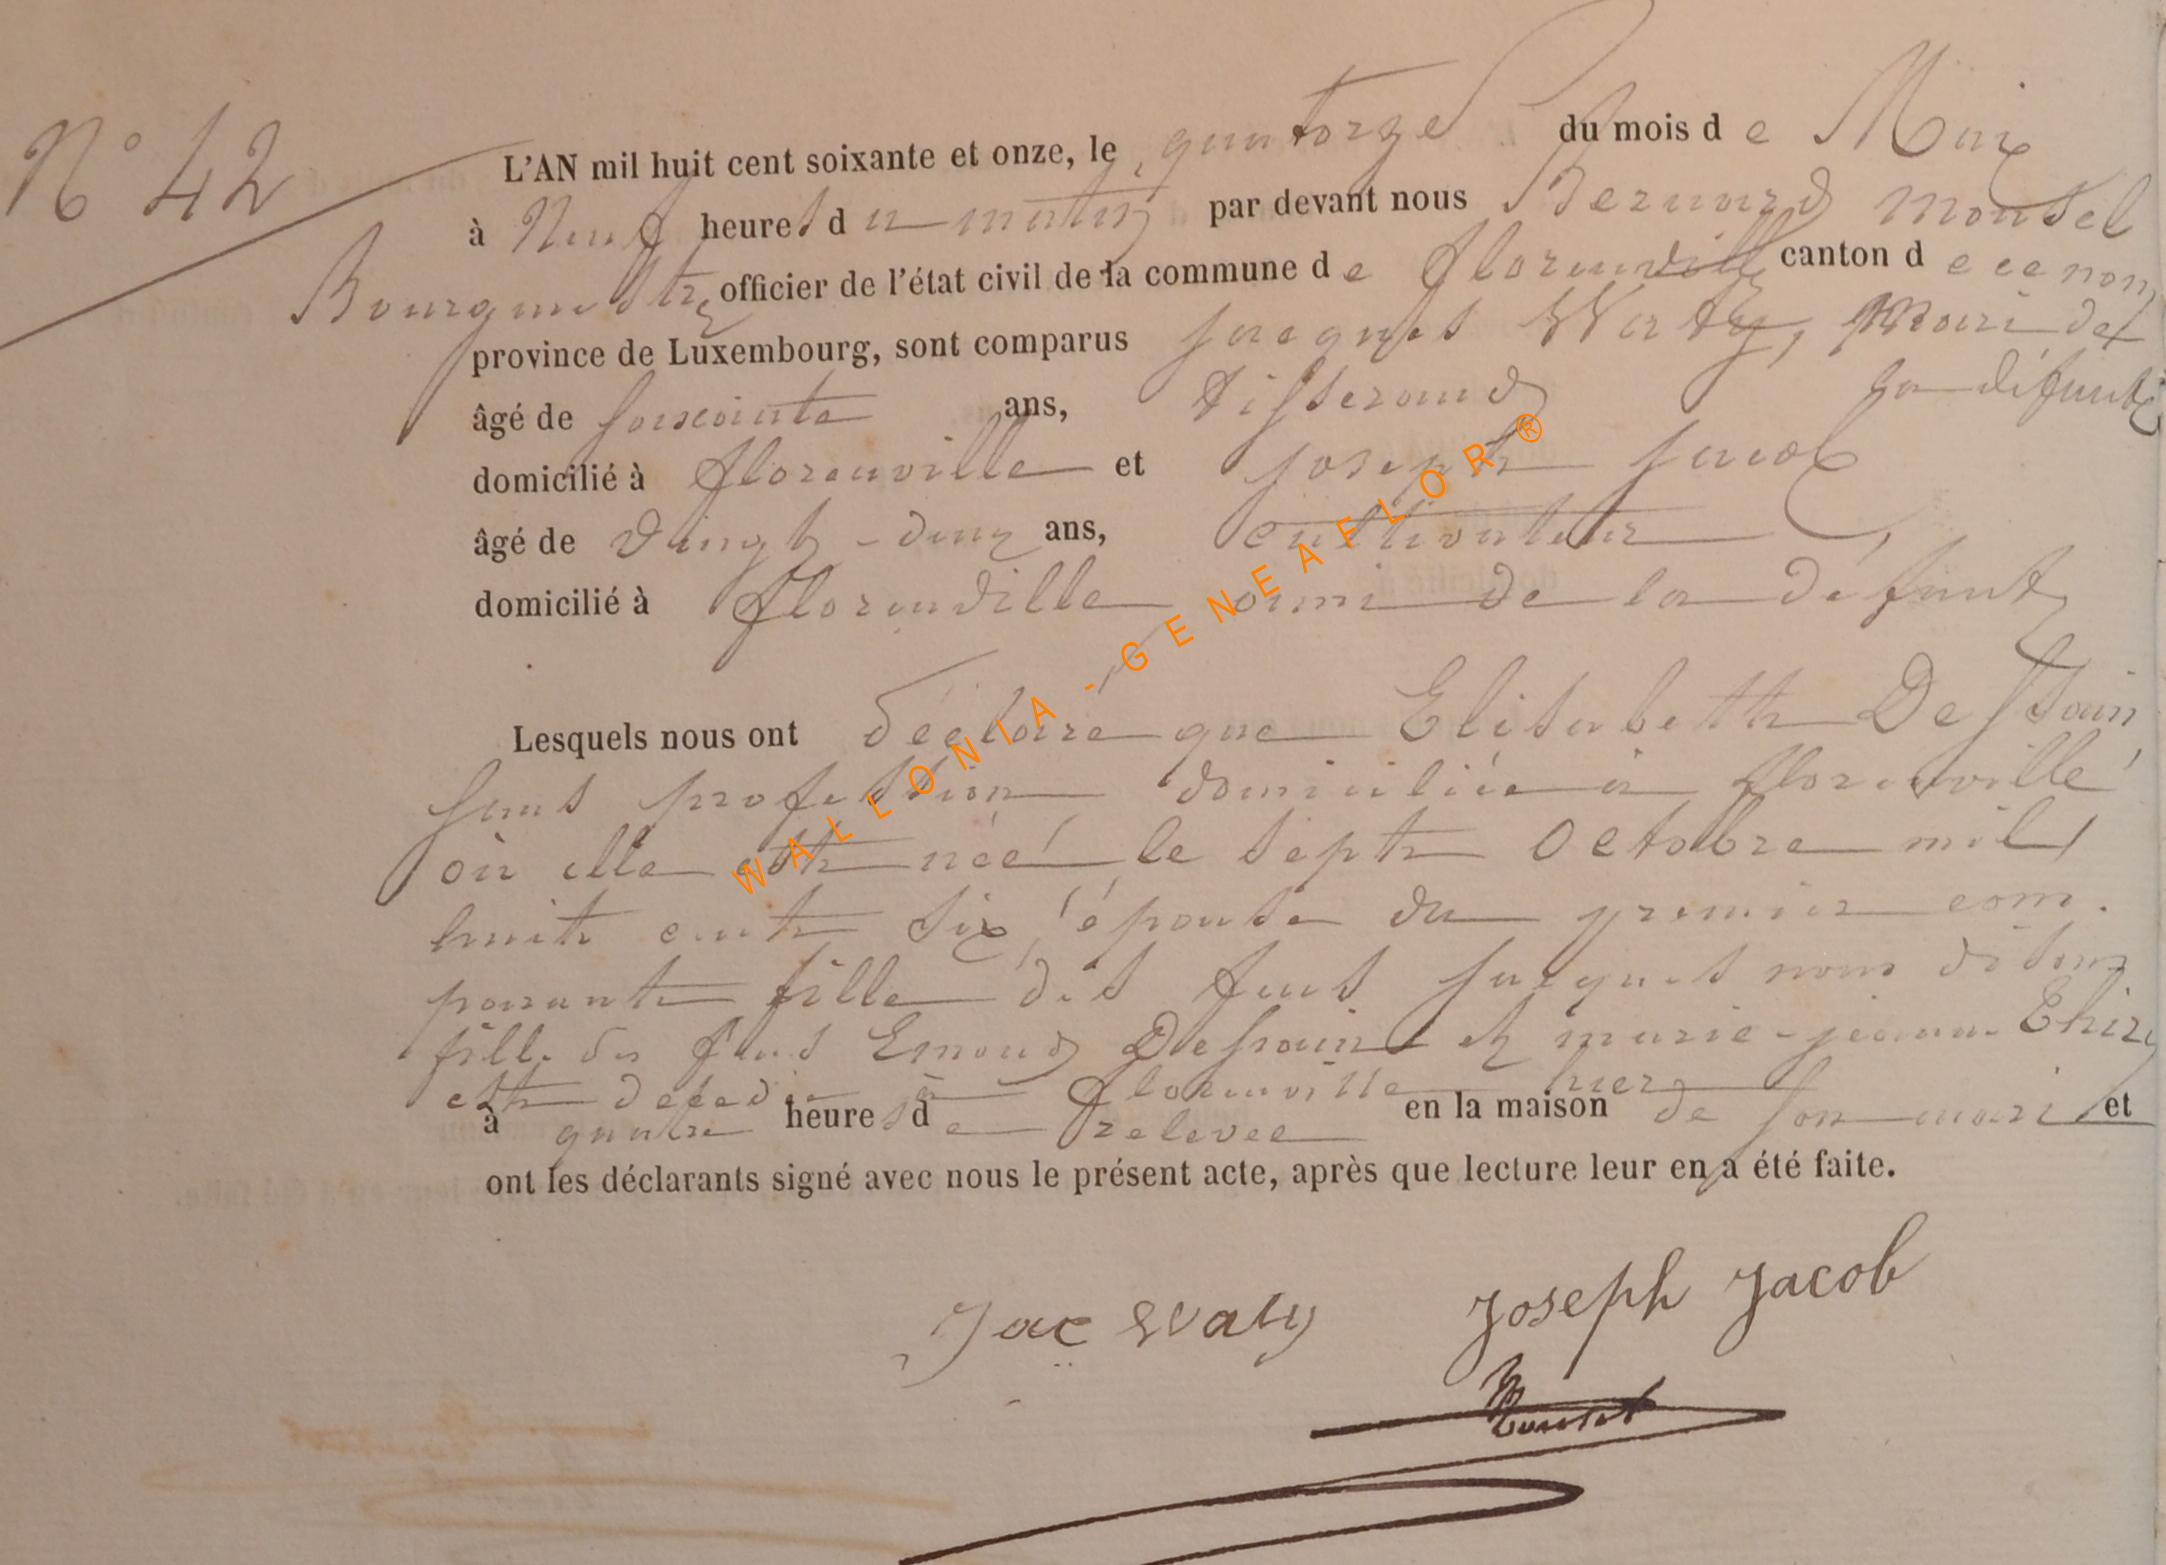 N° 42
L'AN mil huit cent soixante et onze, le quatorze du mois de Mai
à Neuf heures du matin par devant nous Bernard Monsel
Bourgmestre officier de l'état civil de la commune de florenville canton de ce nom
province de Luxembourg, sont comparus Jacques Waty, Mari de
la défunte
âgé de soixante ans, tisserand
domicilié à florenville et Joseph Jacob
âgé de vingt-deux ans, cultivateur
domicilié à florenville ami de la défunte
Lesquels nous ont déclaré que Elisabeth Dessain
sans profession domiciliée à florenville
où elle est née le sept Octobre mil
huit cent six, épouse du premier com.
parant fille des feus Jacques nous disons
fille des feus Emond Dessain et marie-jeanne Thiry
est décédée à florenville hier
à quatre heures de relevée en la maison de son mari et
ont les déclarants signé avec nous le présent acte, après que lecture leur en a été faite.
Jac Waty Joseph Jacob
Monsel
WALLONIA - GENEAFLOR ®